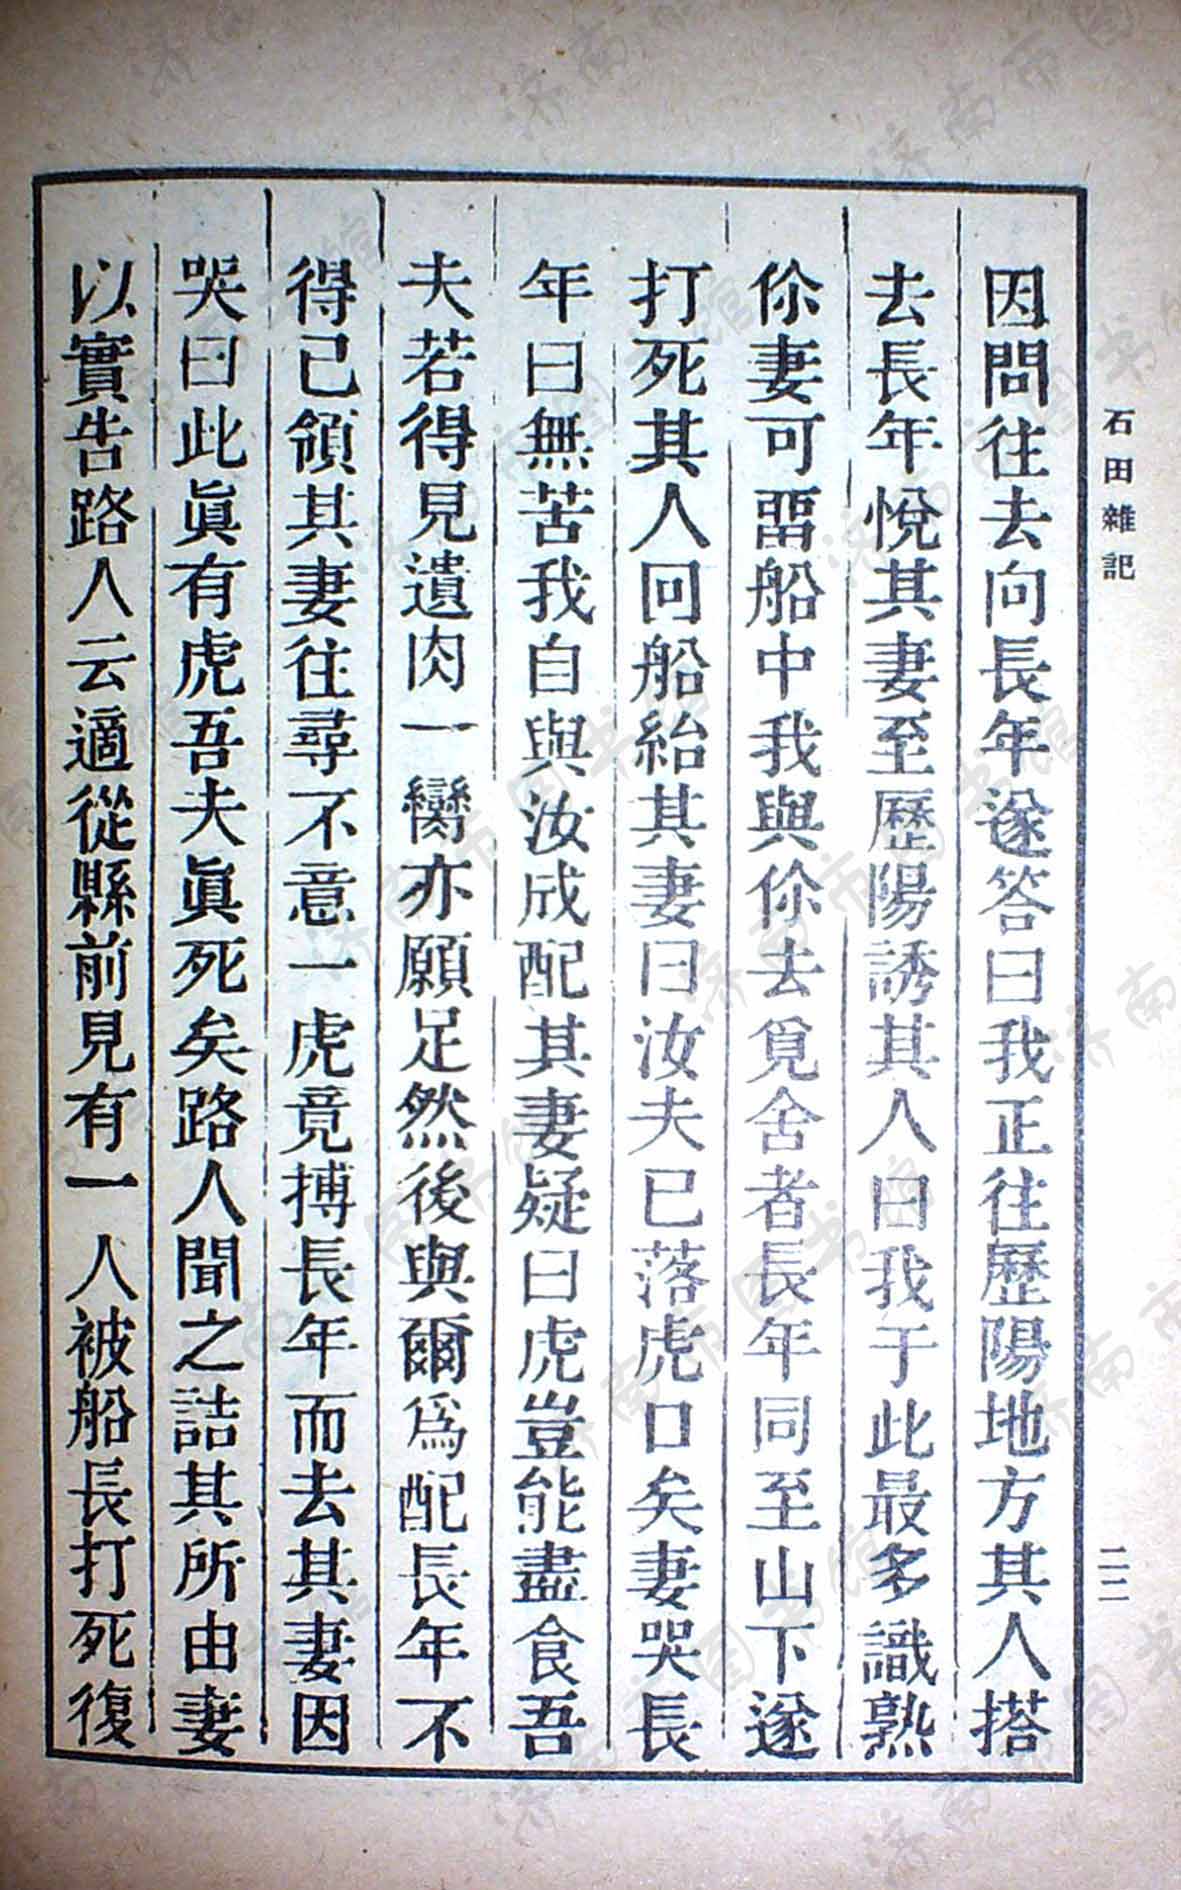 石田雜記
二二
因問往去向長年遂答曰我正往歷陽地方其人搭
去長年悅其妻至歷陽誘其人曰我于此最多識熟
伱妻可畱船中我與伱去覓舍者長年同至山下遂
打死其人回船紿其妻曰汝夫已落虎口矣妻哭長
年曰無苦我自與汝成配其妻疑曰虎豈能盡食吾
夫若得見遺肉一臠亦願足然後與爾爲配長年不
得已領其妻往尋不意一虎竟搏長年而去其妻因
哭曰此眞有虎吾夫眞死矣路人聞之詰其所由妻
以實告路人云適從縣前見有一人被船長打死復
济南市图书馆